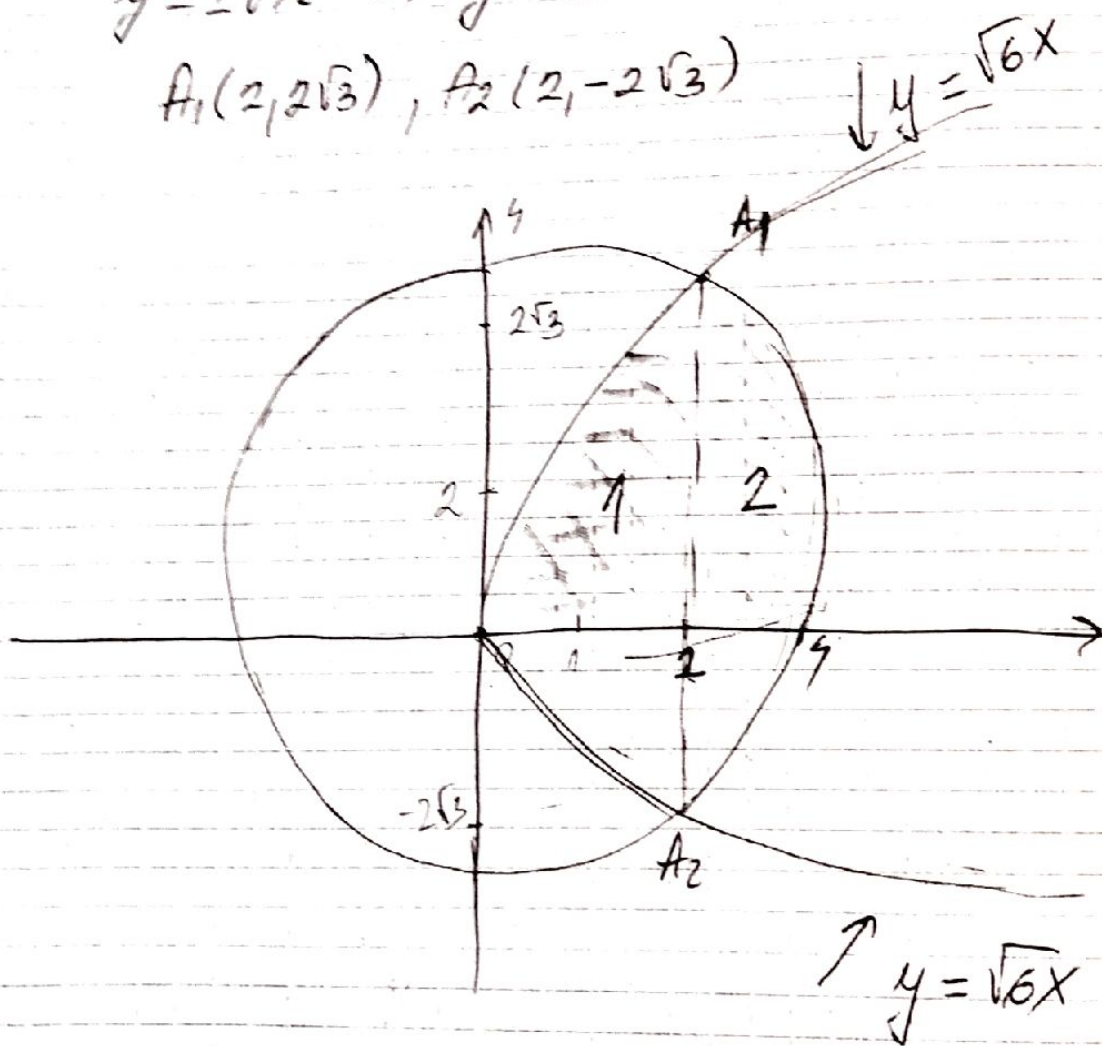 A₁(2,2√3), A₂(2,-2√3)
↓ y = √6x
y
A₁
2√3
2
1
2
0 1 2 4
-2√3
A₂
↗ y = √6x